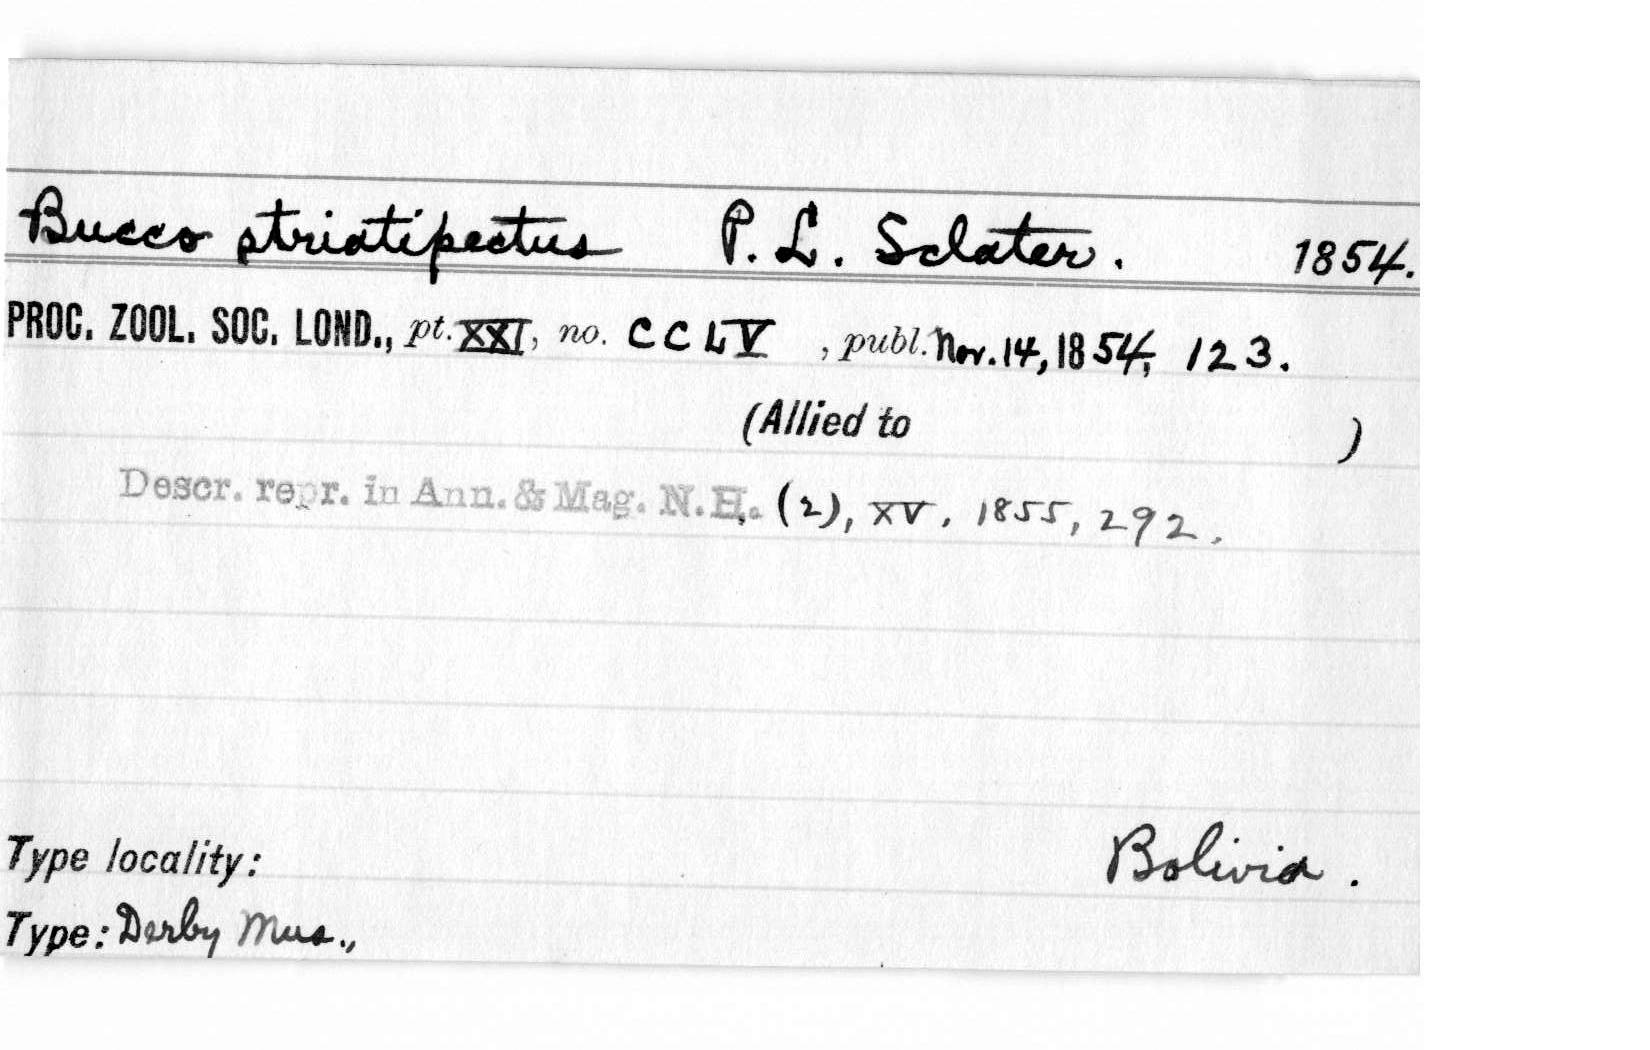 Bucco striatipectus P. L. Sclater. 1854.
PROC. ZOOL. SOC. LOND., pt. XXI, no. CCLV , publ. Nov. 14, 1854, 123.
(Allied to )
Descr. repr. in Ann. & Mag. N.H. (2), XV, 1855, 292.
Type locality: Bolivia.
Type: Derby Mus.,